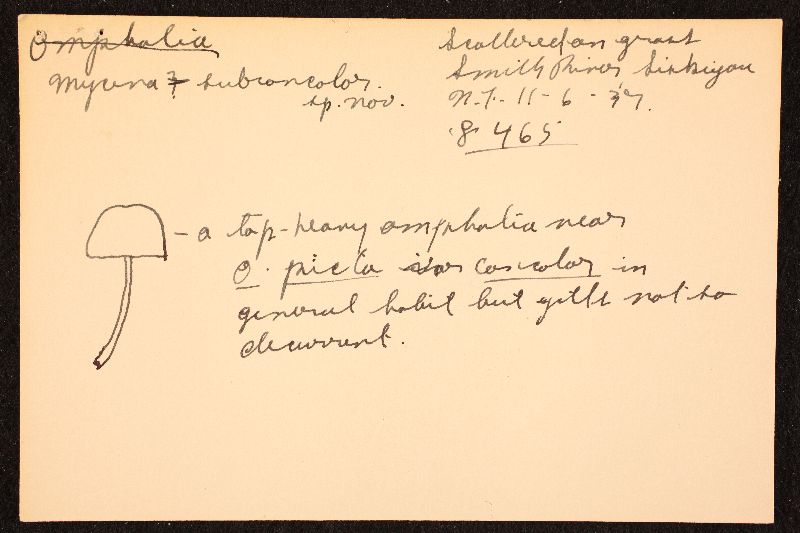 Omphalia
Mycena ? subconcolor.
sp. nov.
Scattered on grass
Smith River Siskiyou
N.F. 11-6-37.
8465
- a top-heavy omphalia near
O. picta var concolor in
general habit but gills not so
decurrent.